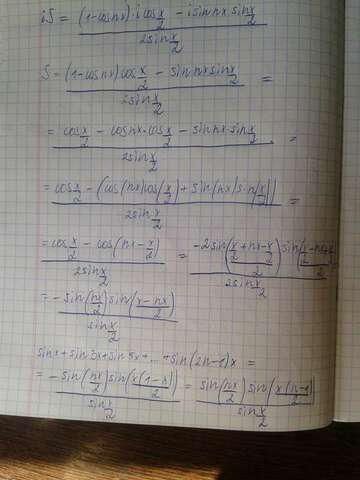 iS = ((1-cos nx)·i cos x/2 - i sin nx sin x/2) / (2 sin x/2)
S = ((1-cos nx) cos x/2 - sin nx sin x/2) / (2 sin x/2) =
= (cos x/2 - cos nx·cos x/2 - sin nx·sin x/2) / (2 sin x/2) =
= (cos x/2 - (cos(nx)cos(x/2) + sin(nx)sin(x/2))) / (2 sin x/2) =
= (cos x/2 - cos(nx - x/2)) / (2 sin x/2) = (-2 sin((x/2 + nx - x/2)/2) sin((x/2 - nx + x/2)/2)) / (2 sin x/2)
= (-sin(nx/2) sin((x-nx)/2)) / (sin x/2)
sin x + sin 3x + sin 5x + ... + sin(2n-1)x =
= (-sin(nx/2) sin(x(1-n)/2)) / (sin x/2) = (sin(nx/2) sin(x(n-1)/2)) / (sin x/2)